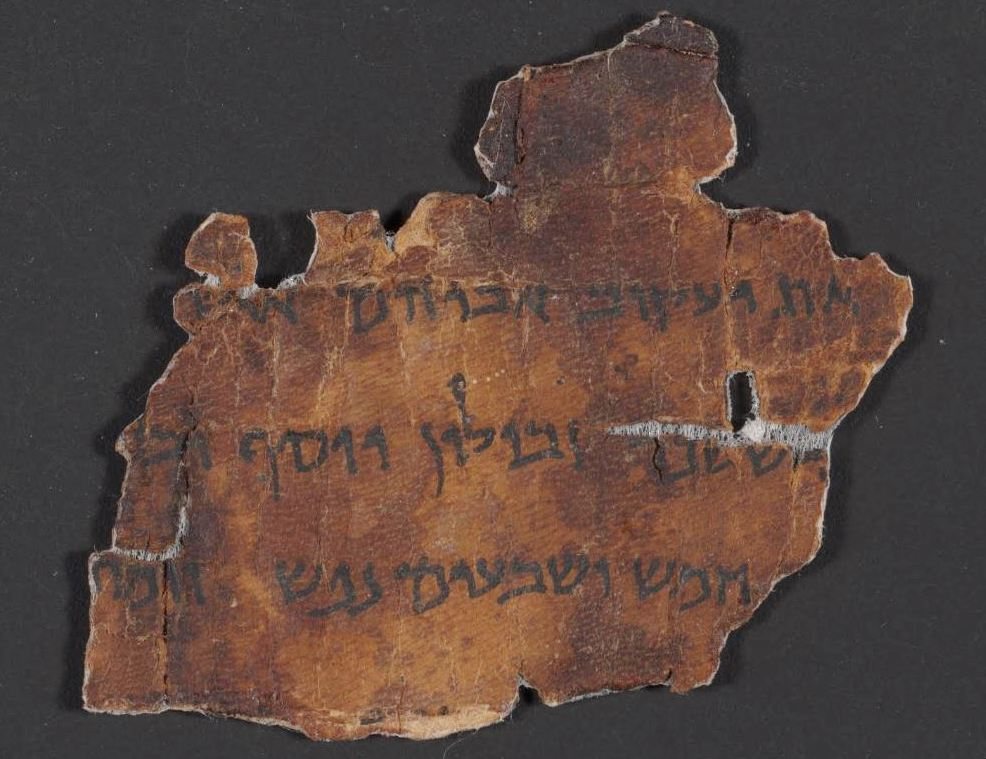 את יעקוב אביהם איש
יששכר זבולן ויוסף ובנ
חמש ושבעים נפש וימת